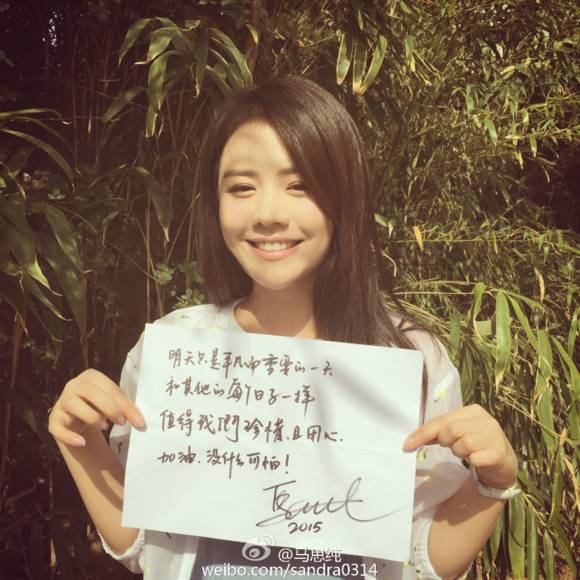 明天只是平凡而重要的一天
和其他的每个日子一样
值得我们珍惜且用心.
加油.没什么可怕!
2015
@马思纯
weibo.com/sandra0314